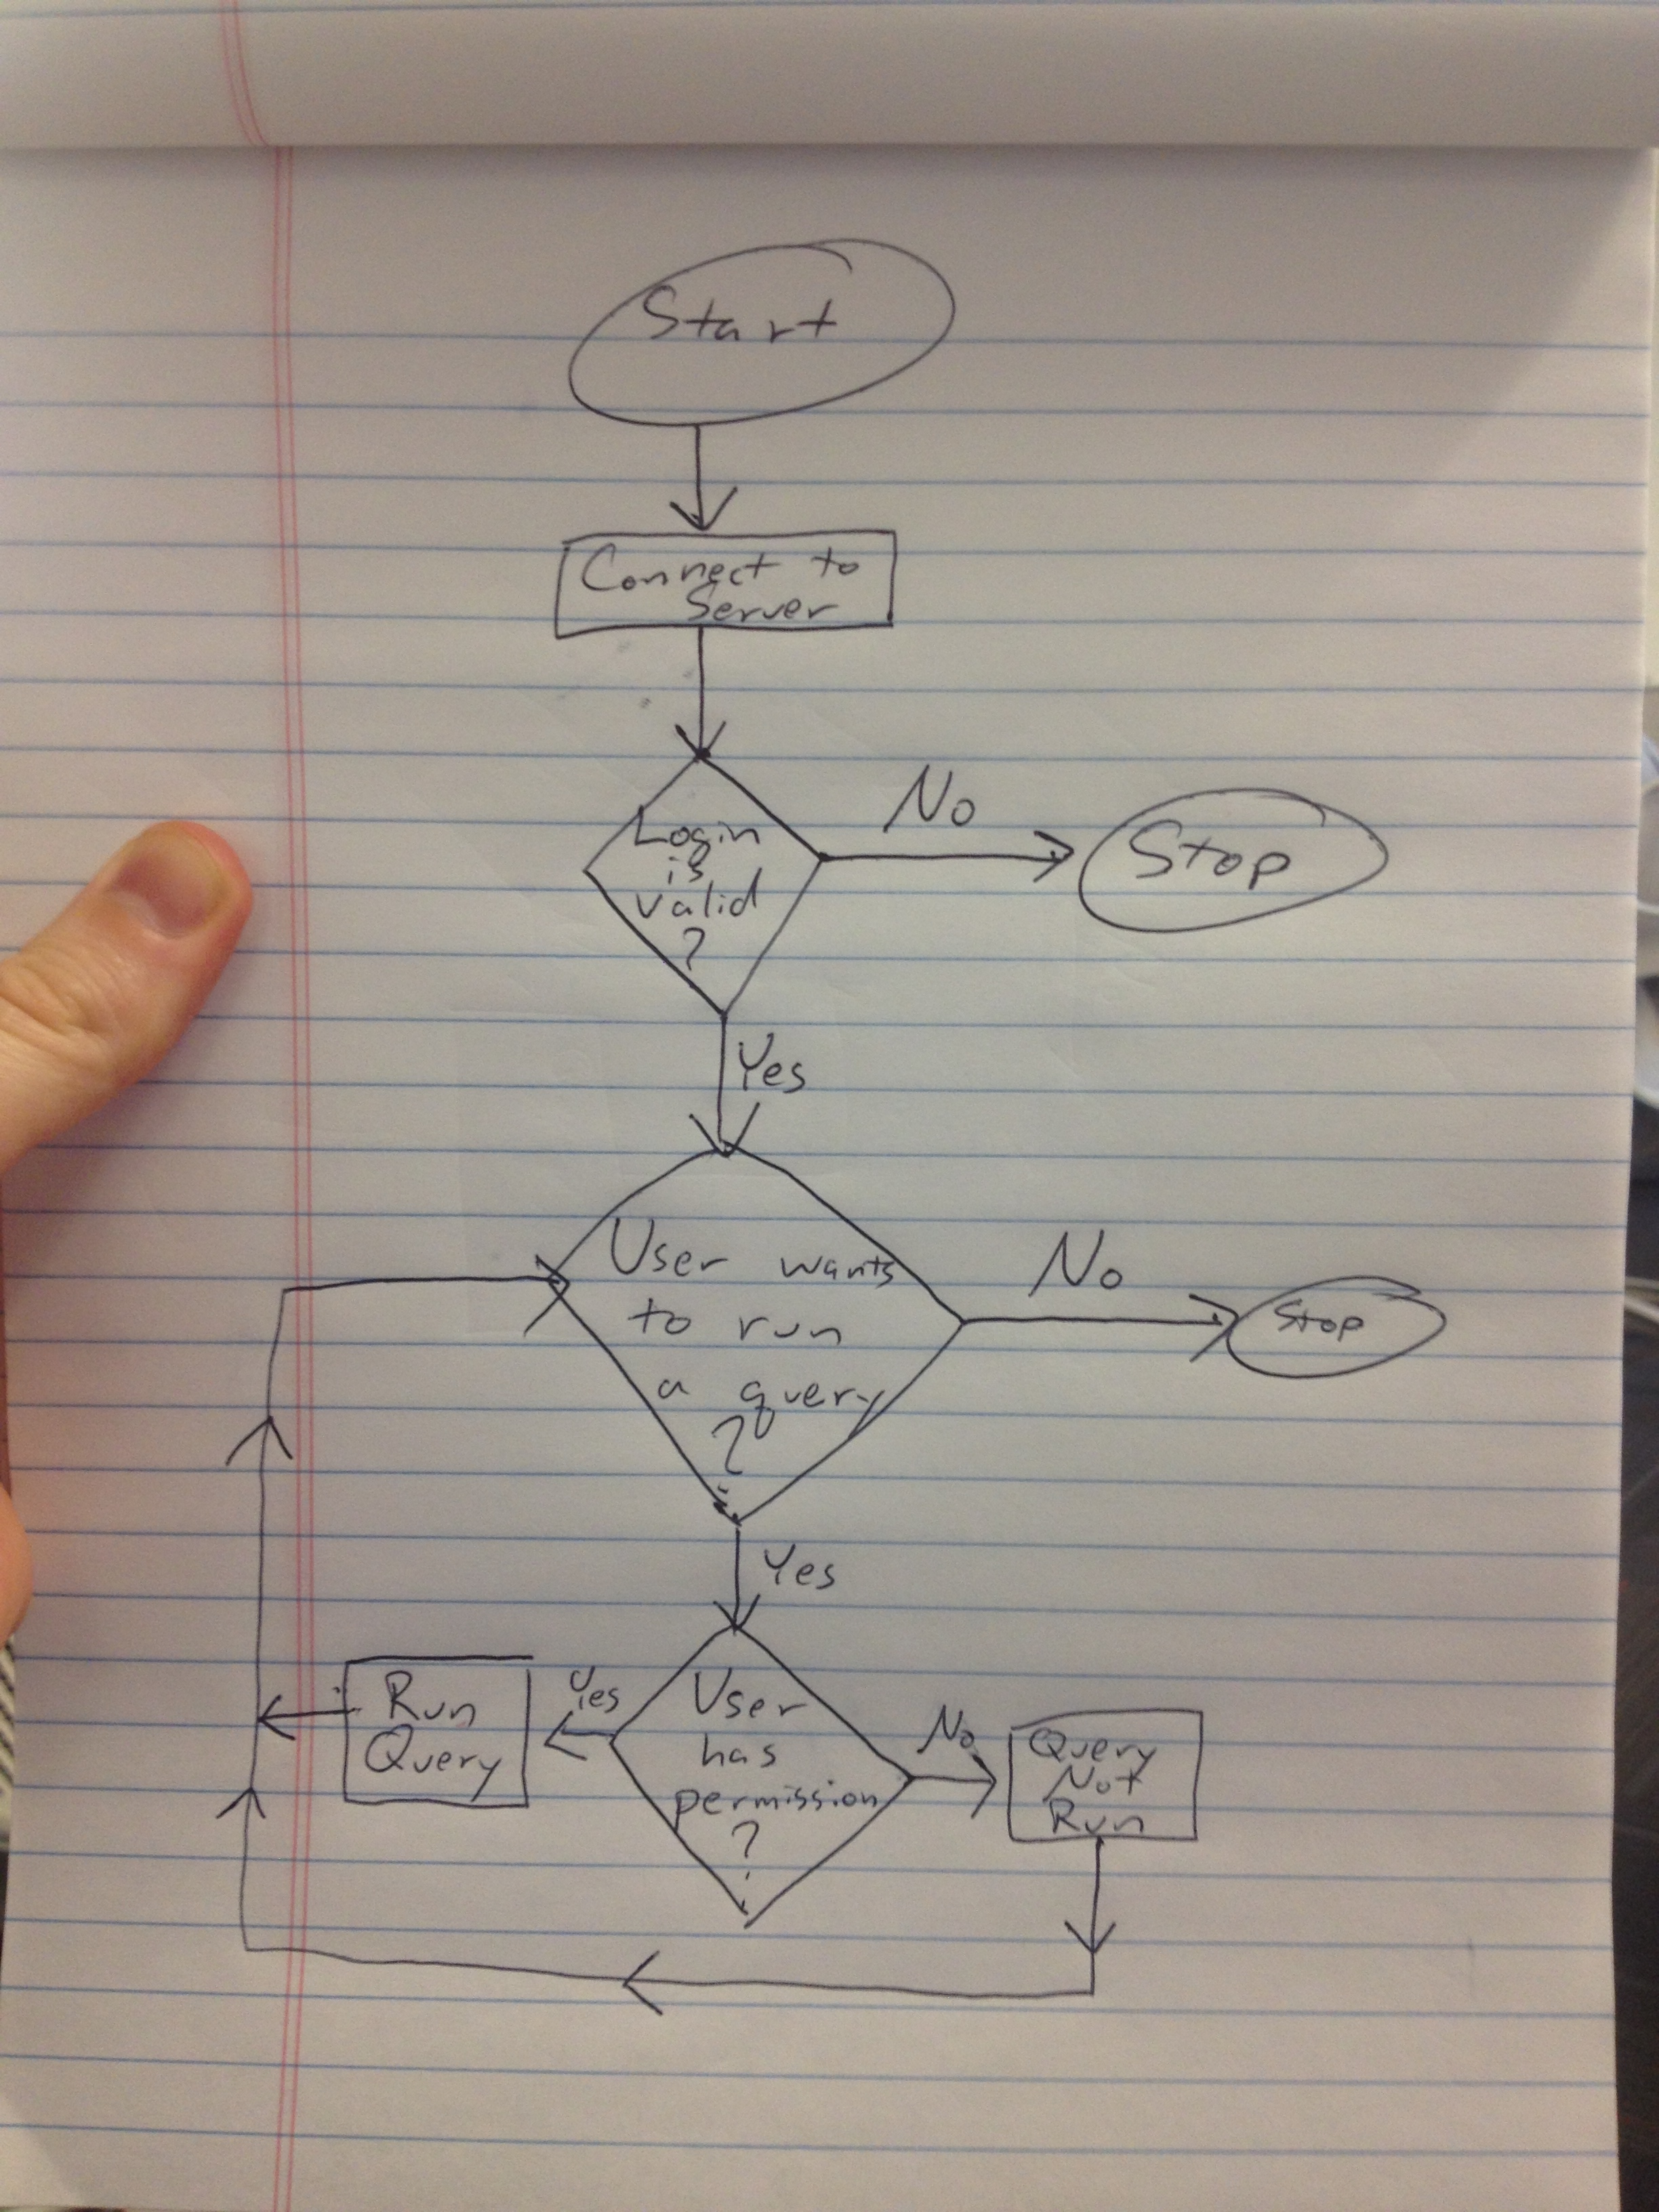 Start
Connect to
Server
Login
is
valid
?
No
Stop
Yes
User wants
to run
a query
?
No
Stop
Yes
User
has
permission
?
Yes
Run
Query
No
Query
Not
Run